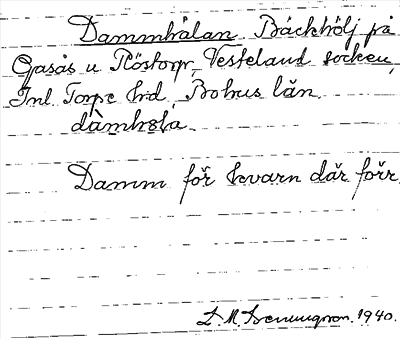 Dammhålan. Bäckhölj på
Gasås u. Röstorp, Vesteland socken,
Inl. Torpe hd, Bohus län.
dàmhǝla.
Damm för kvarn där förr.
1940.